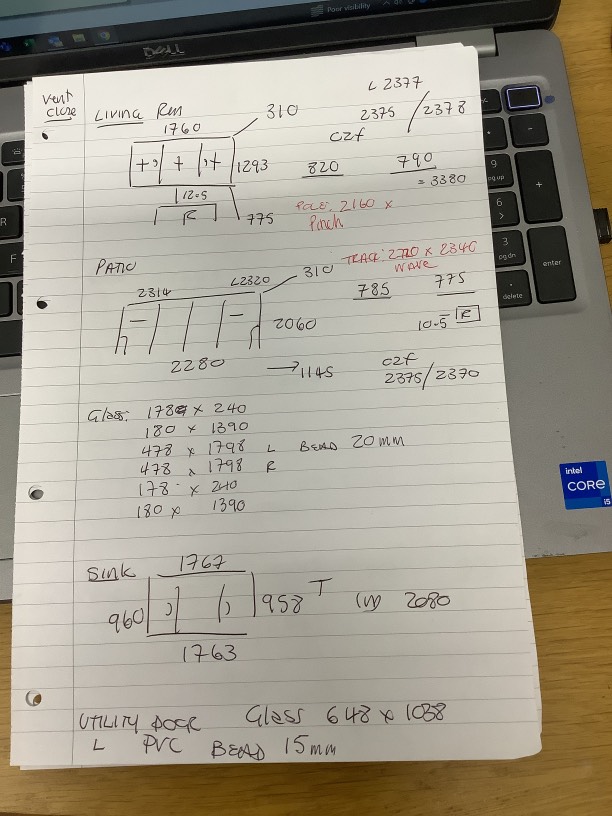 Poor visibility
DELL
Vent
Close
Living Rm
1760
310
L 2377
2375 / 2378
c2f
1293
820
790
= 3380
12.5
R
775
POLE: 2160 x
Pinch
PATIO
2314
L2320
310
TRACK: 2720 x 2346
WAVE
785
775
2060
10.5 R
2280
→ 1145
c2f
2375/2370
Glass: 1789 x 240
180 x 1390
478 x 1798 L BEAD 20mm
478 x 1798 R
178 x 240
180 x 1390
Sink
1767
960
958
T
(W) 2080
1763
UTILITY DOOR Glass 648 x 1038
L PVC BEAD 15mm
intel
CORE
i5
9
pg up
6
3
pg dn
enter
delete
R
F